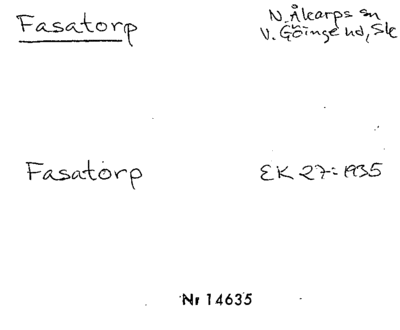 Fasatorp
N. Åkarps sn
V. Göinge hd, Sk
Fasatorp
EK 27:1935
Nr 14635